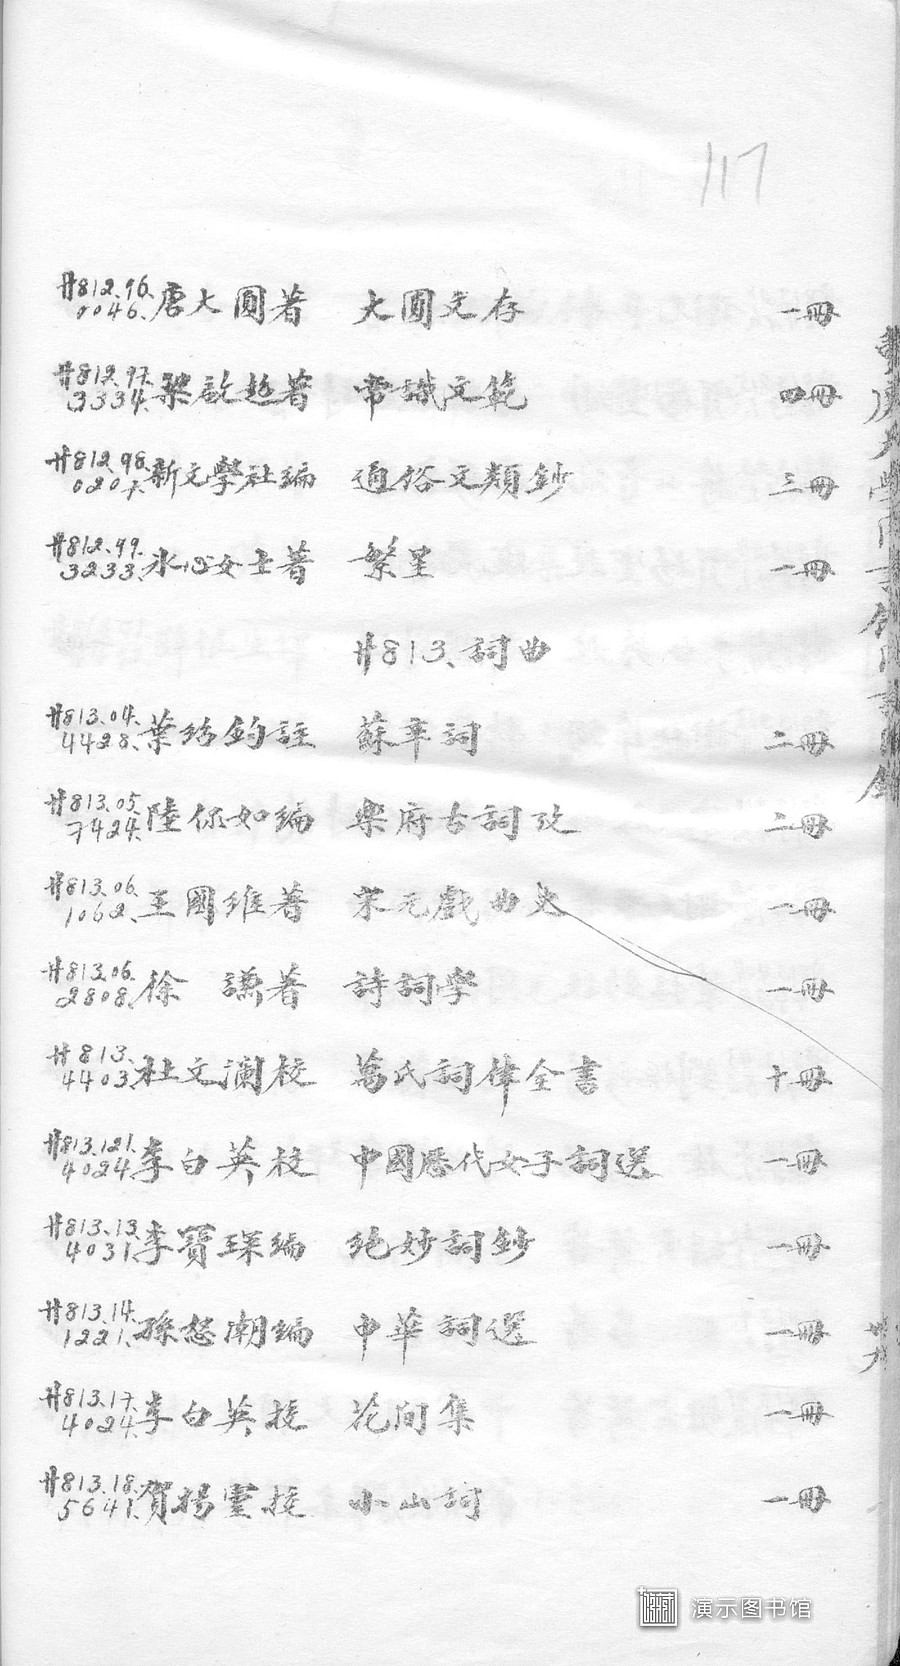 117
廿812.96. 0046. 唐大圓著 大圓文存 一冊
廿812.97. 3334. 梁啟超著 常識文範 四冊
廿812.98. 0207. 新文學社編 通俗文類鈔 三冊
廿812.99. 3233. 冰心女士著 繁星 一冊
廿813、詞曲
廿813.04. 4428. 葉紹鈞註 蘇辛詞 二冊
廿813.05. 7424. 陸侃如編 樂府古詞攷 二冊
廿813.06. 1062. 王國維著 宋元戲曲史 一冊
廿813.06. 2808. 徐謙著 詩詞學 一冊
廿813. 4403. 杜文瀾校 萬氏詞律全書 十冊
廿813.121. 4024. 李白英校 中國歷代女子詞選 一冊
廿813.13. 4031. 李寶琛編 絕妙詞鈔 一冊
廿813.14. 1221. 孫恕潮編 中華詞選 一冊
廿813.17. 4024. 李白英校 花间集 一冊
廿813.18. 5641. 賀揚靈校 小山詞 一冊
演示图书馆